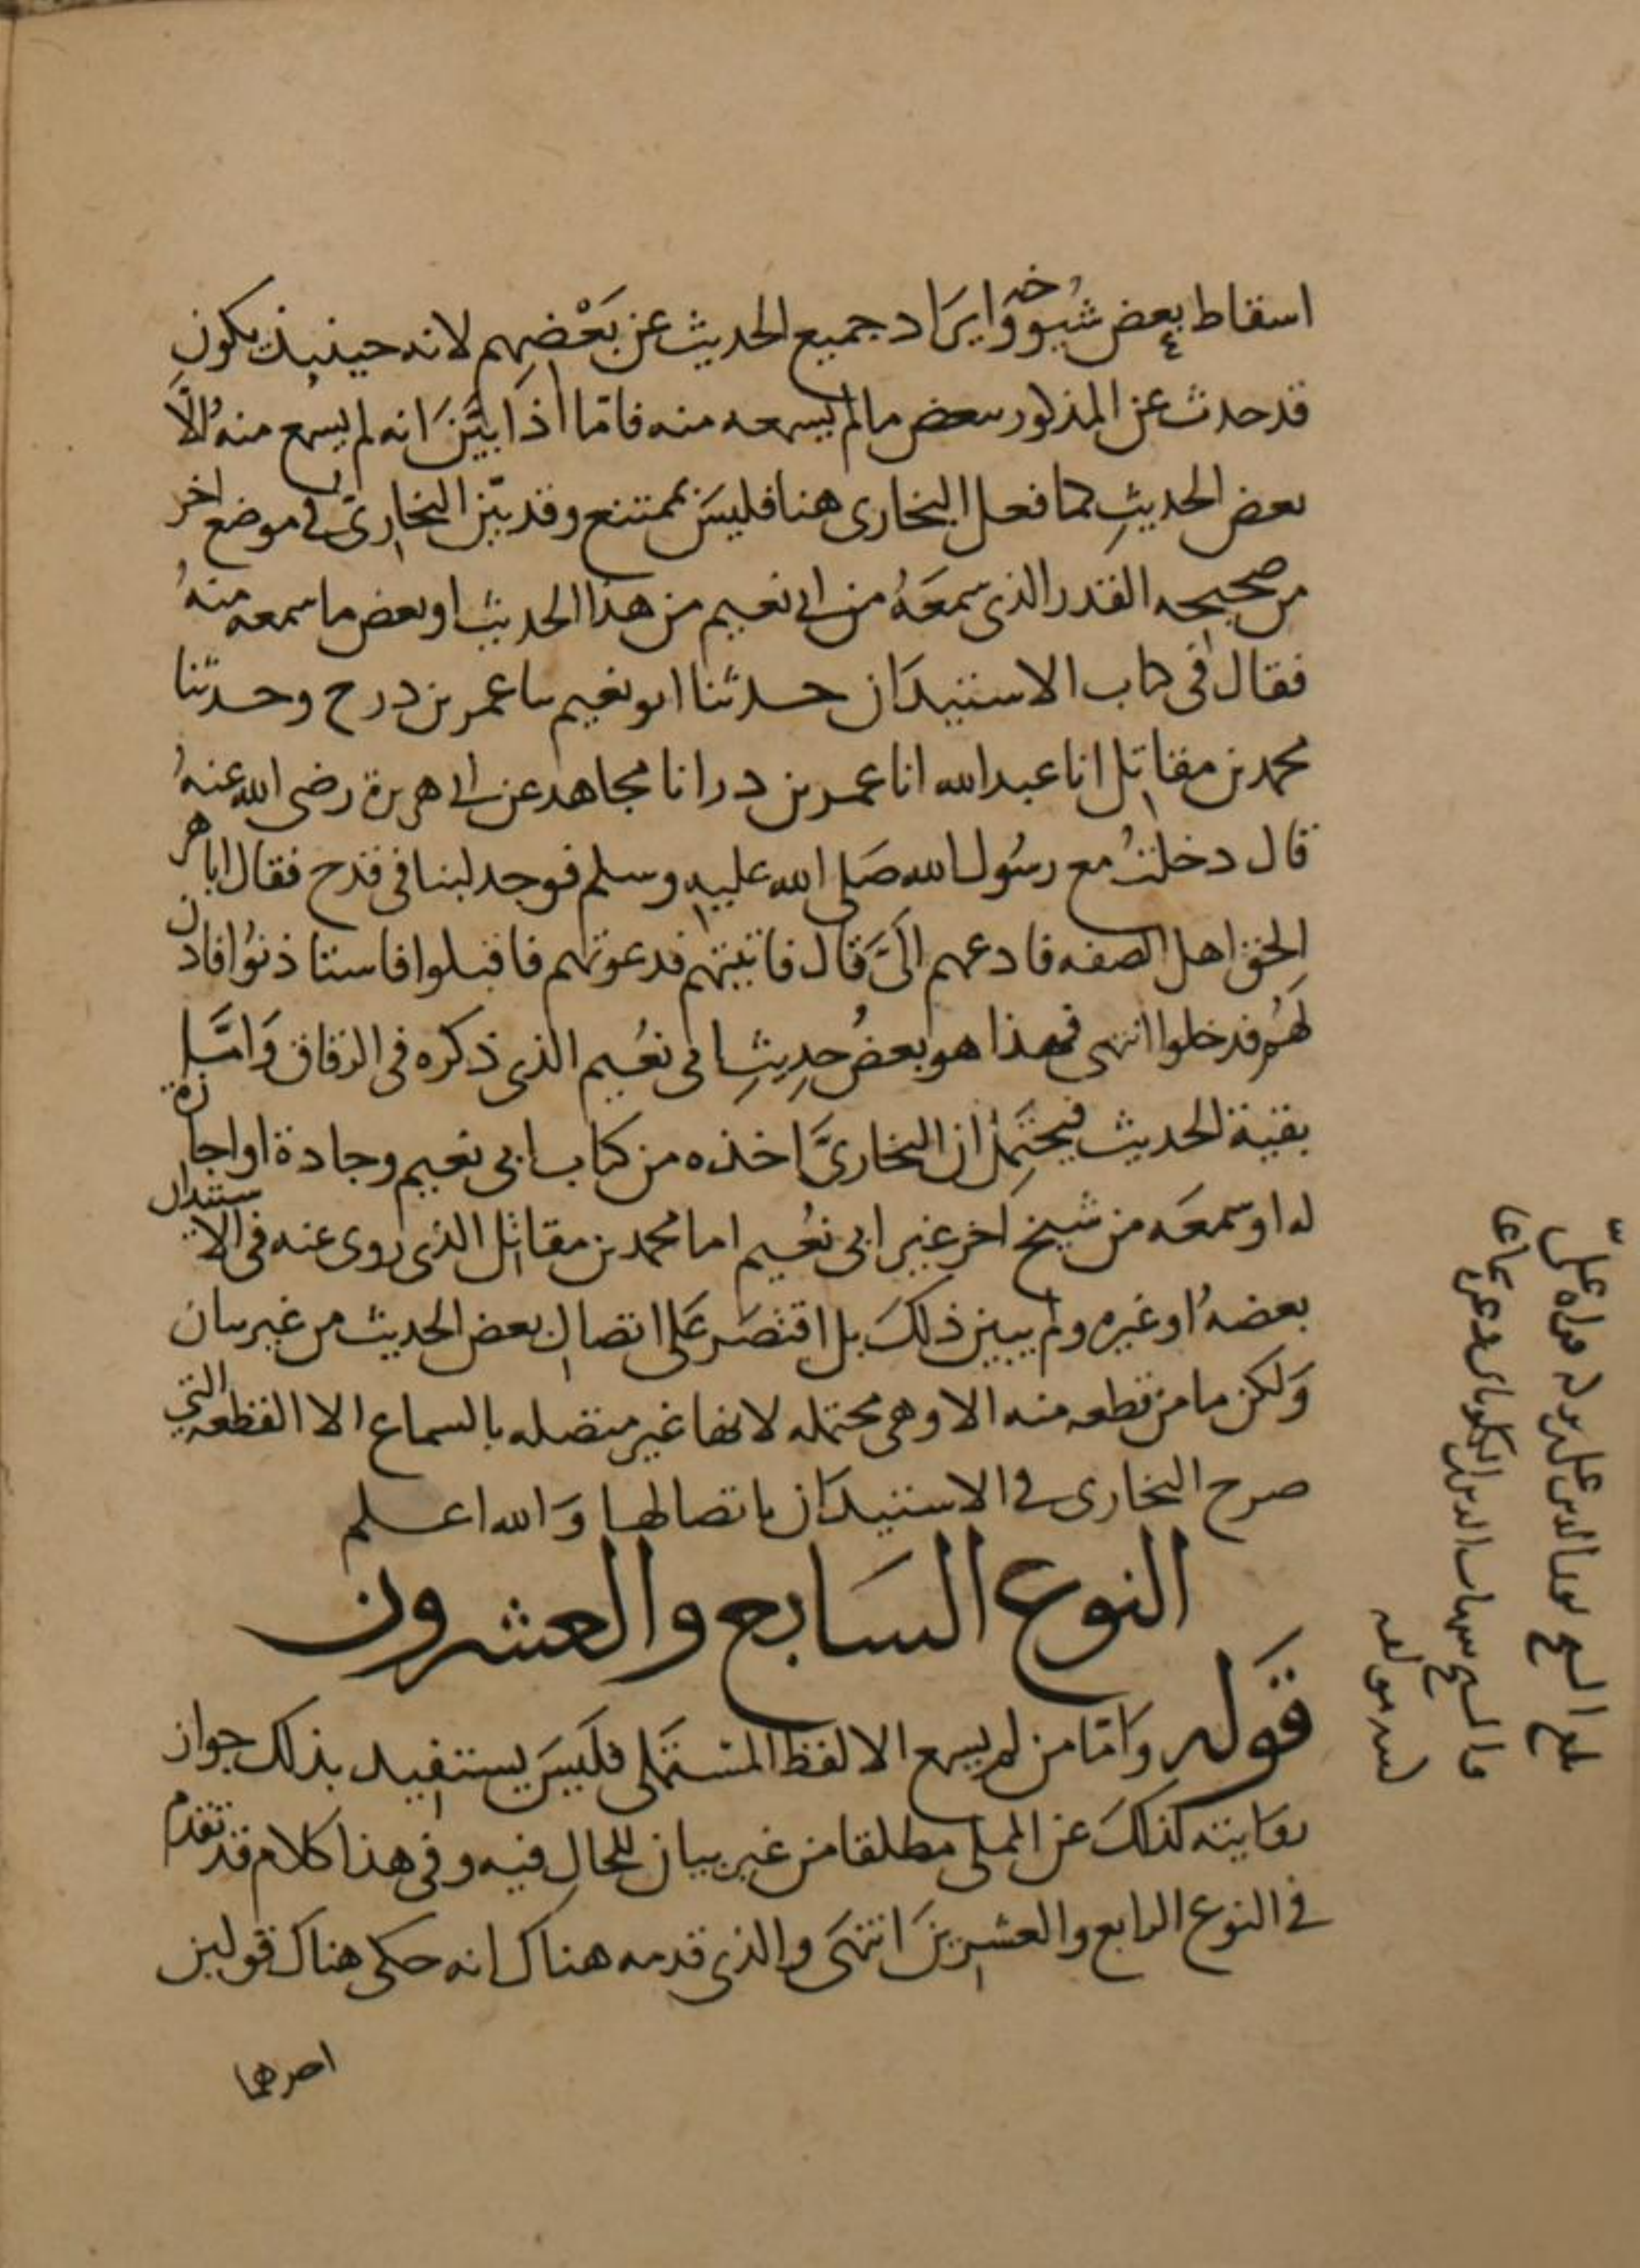 اسقاط بعض شيوخه وايراد جميع الحديث عن بعضهم لانه حينيذ يكون
قد حدث عن المذكور ببعض ما لم يسمعه منه فاما اذا بين انه لم يسمع منه الا
بعض الحديث كما فعل البخارى هنا فليس بممتنع وقد بين البخارى فى موضع اخر
من صحيحه القدر الذى سمعه من ابى نعيم من هذا الحديث او بعض ما سمعه منه
فقال فى كتاب الاستيذان حدثنا ابو نعيم ثنا عمر بن ذر ح وحدثنا
محمد بن مقاتل انا عبد الله انا عمر بن ذر انا مجاهد عن ابى هريرة رضى الله عنه
قال دخلت مع رسول الله صلى الله عليه وسلم فوجد لبنا فى قدح فقال ابا هر
الحق اهل الصفه فادعهم الى قال فاتيتهم فدعوتهم فاقبلوا فاستاذنوا فاذن
لهم فدخلوا انتهى فهذا هو بعض حديث ابى نعيم الذى ذكره فى الرقاق واما
بقية الحديث فيحتمل ان البخارى اخذه من كتاب ابى نعيم وجادة او اجازة
له او سمعه من شيخ اخر غير ابى نعيم اما محمد بن مقاتل الذى روى عنه فى الاستيذان
بعضه او غيره ولم يبين ذلك بل اقتصر على اتصال بعض الحديث من غير بيان
ولكن ما من قطعه منه الا وهى محتمله لانها غير متصله بالسماع الا القطعه التي
صرح البخارى فى الاستيذان باتصالها والله اعلم
النوع السابع والعشرون
قوله واما من لم يسمع الا لفظ المستملى فليس يستفيد بذلك جواز
روايته كذلك عن المملى مطلقا من غير بيان للحال فيه وفى هذا كلام قد تقدم
فى النوع الرابع والعشرين انتهى والذى قدمه هناك انه حكى هناك قولين
احدهما
بلغ الشيخ نور الدين على